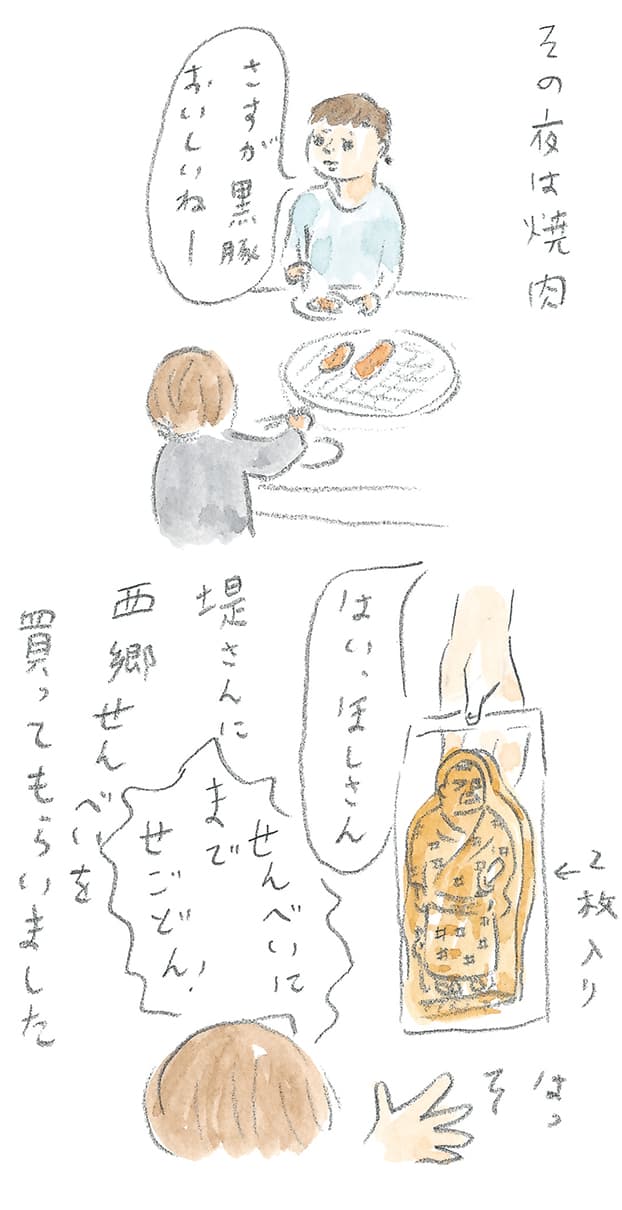 その夜は焼肉
さすが黒豚
おいしいねー
はいっほしさん
←2枚入り
堤さんに
西郷せんべいを
買ってもらいました
せんべいに
まで
せごどん!
はっ